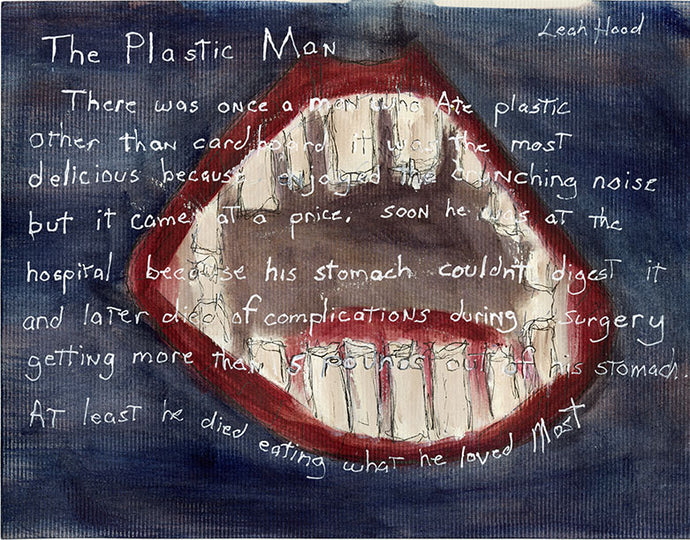 Leah Hood
The Plastic Man
There was once a man who Ate plastic
other than cardboard it was the most
delicious because enjoyed the crunching noise
but it came at a price. soon he was at the
hospital because his stomach couldn't digest it
and later died of complications during surgery
getting more than 5 pounds out of his stomach..
At least he died eating what he loved most